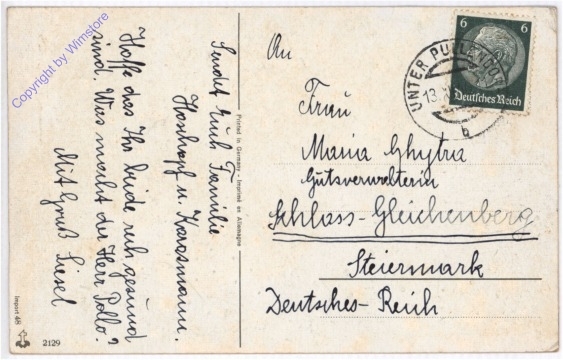 Copyright by Wimstore
Sendet Euch Familie
Hoshopf u. Krossmann.
Hoffe das Ihr beide rech gesund
sind. Was macht der Herr Pollo?
Mit Gruß Liesel
Printed in Germany - Imprimé en Allemagne
Import 48
2129
An
Frau
Maria Ghytra
Gutsverwalterin
Schloss-Gleichenberg
Steiermark
Deutsches-Reich
6 6
Deutsches Reich
UNTER PULLENDORF
13.X
b